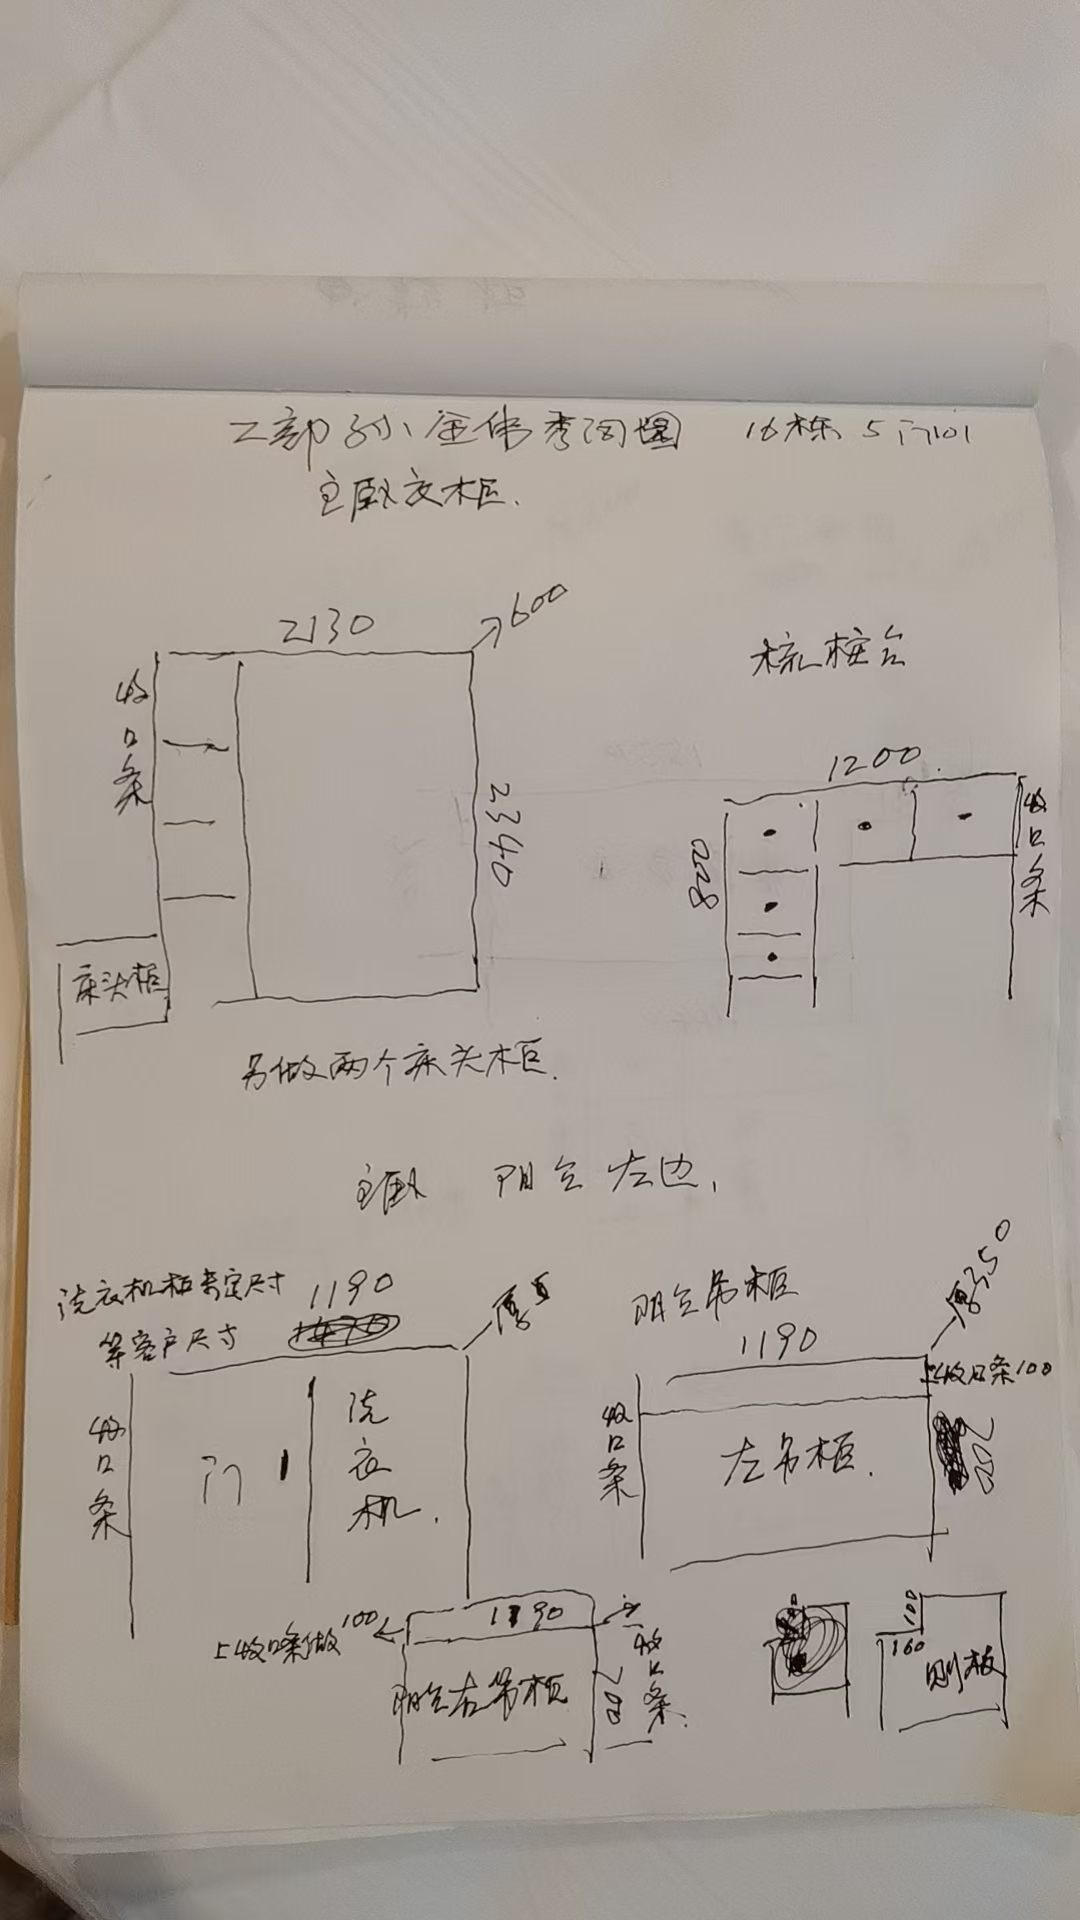 工部孙金伟秀河園 16栋5门101
主卧衣柜.
2130
600
收口条
2340
床头柜
另做两个床头柜.
梳桩台
1200
828
收口条
主卧 阳台左边,
洗衣机柜考定尺寸
等客户尺寸
1190
收口条
门
洗衣机.
阳台吊柜
1190
厚350
收口条100
收口条
左吊柜.
上收口条做100
1190
阳台右吊柜
收口条.
100
160
刚板